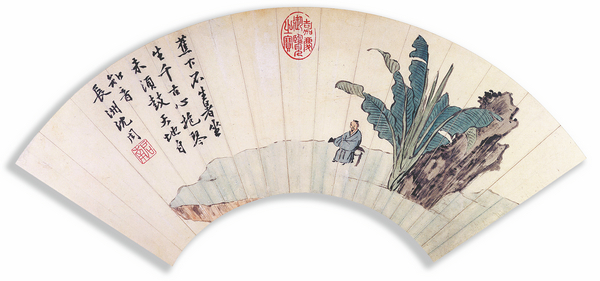 嘉慶御覽之寶
蕉下不生暑坐
生千古心抱琴
未須鼓天地自
知音
長洲沈周